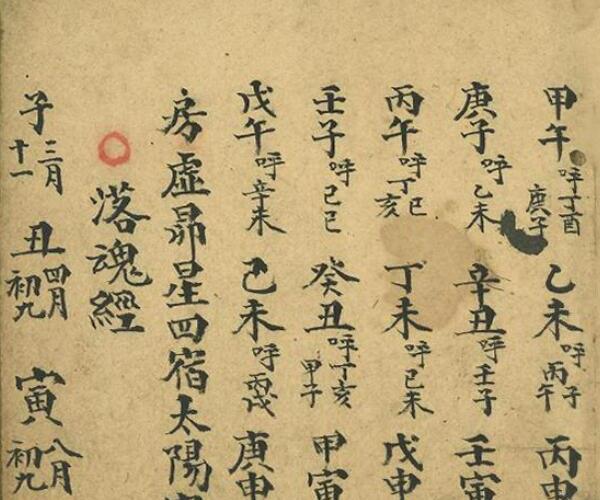 甲午呼丁酉庚子 乙未呼丙子丙午 丙申
庚子呼乙未 辛丑呼壬子 壬寅
丙午呼丁巳丁亥 丁未呼己未 戊申
壬子呼己巳 癸丑呼丁亥甲子 甲寅
戊午呼辛未 己未呼丙戌 庚申
房虛昴星四宿太陽
落魂經
子三月十一 丑四月初九 寅八月初九